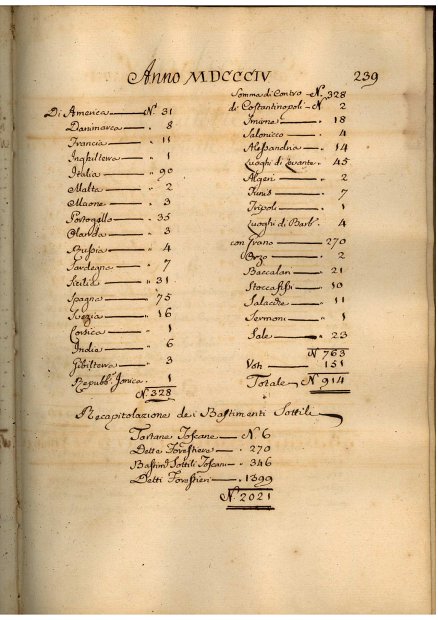 Anno MDCCCIV
239
Di America N. 31
Danimarca 8
Francia 11
Inghilterra 1
Italia 90
Malta 2
Maone 3
Portogallo 35
Olanda 3
Russia 4
Sardegna 7
Sicilia 31
Spagna 75
Svezia 16
Corsica 1
India 6
Gibilterra 3
Repubb. Jonica 1
N. 328
Somma di Contro N. 328
di Costantinopoli N 2
Smirne 18
Salonicco 4
Alessandria 14
Luoghi di Levante 45
Algeri 2
Tunis 7
Tripoli 1
Luoghi di Barb. 4
con Grano 270
Orzo 2
Baccalari 21
Stoccafissi 10
Salacche 11
Sermoni 1
Sale 23
N 763
Voti 151
Totale N 914
Recapitolazione dei Bastimenti Sottili
Tartane Toscane N 6
Dette Forestiere 270
Bastim. Sottili Toscani 346
Detti Forestieri 1399
N. 2021